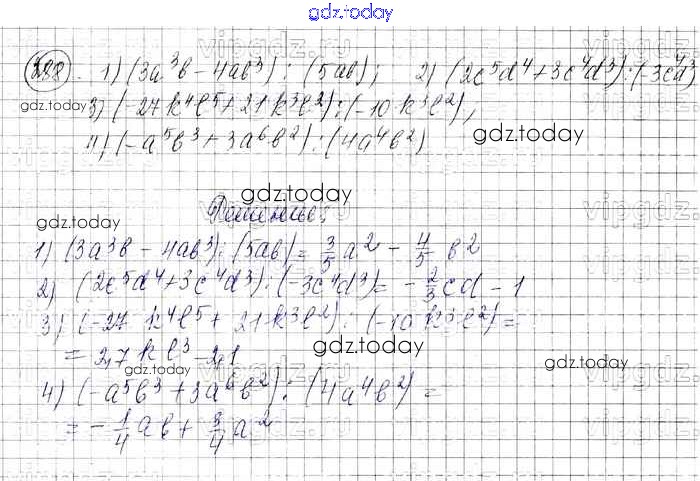 gdz.today
288. 1) (3a³b - 4ab³) : (5ab); 2) (2c⁵d⁴ + 3c⁴d³) : (-3c⁴d³)
gdz.today
3) (-27k⁴l⁵ + 21k³l²) : (-10k³l²),
4) (-a⁵b³ + 3a⁶b²) : (4a⁴b²)
gdz.today
gdz.today
Решение.
gdz.today
1) (3a³b - 4ab³) : (5ab) = 3/5 a² - 4/5 b²
2) (2c⁵d⁴ + 3c⁴d³) : (-3c⁴d³) = -2/3 cd - 1
3) (-27k⁴l⁵ + 21k³l²) : (-10k³l²) =
= 2,7kl³ - 2,1
gdz.today
gdz.today
4) (-a⁵b³ + 3a⁶b²) : (4a⁴b²) =
= -1/4 ab + 3/4 a²